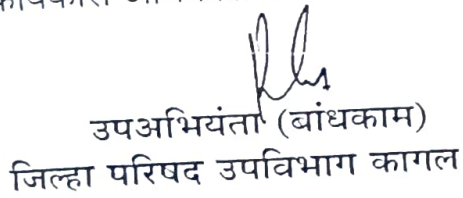 उपअभियंता (बांधकाम)
जिल्हा परिषद उपविभाग कागल